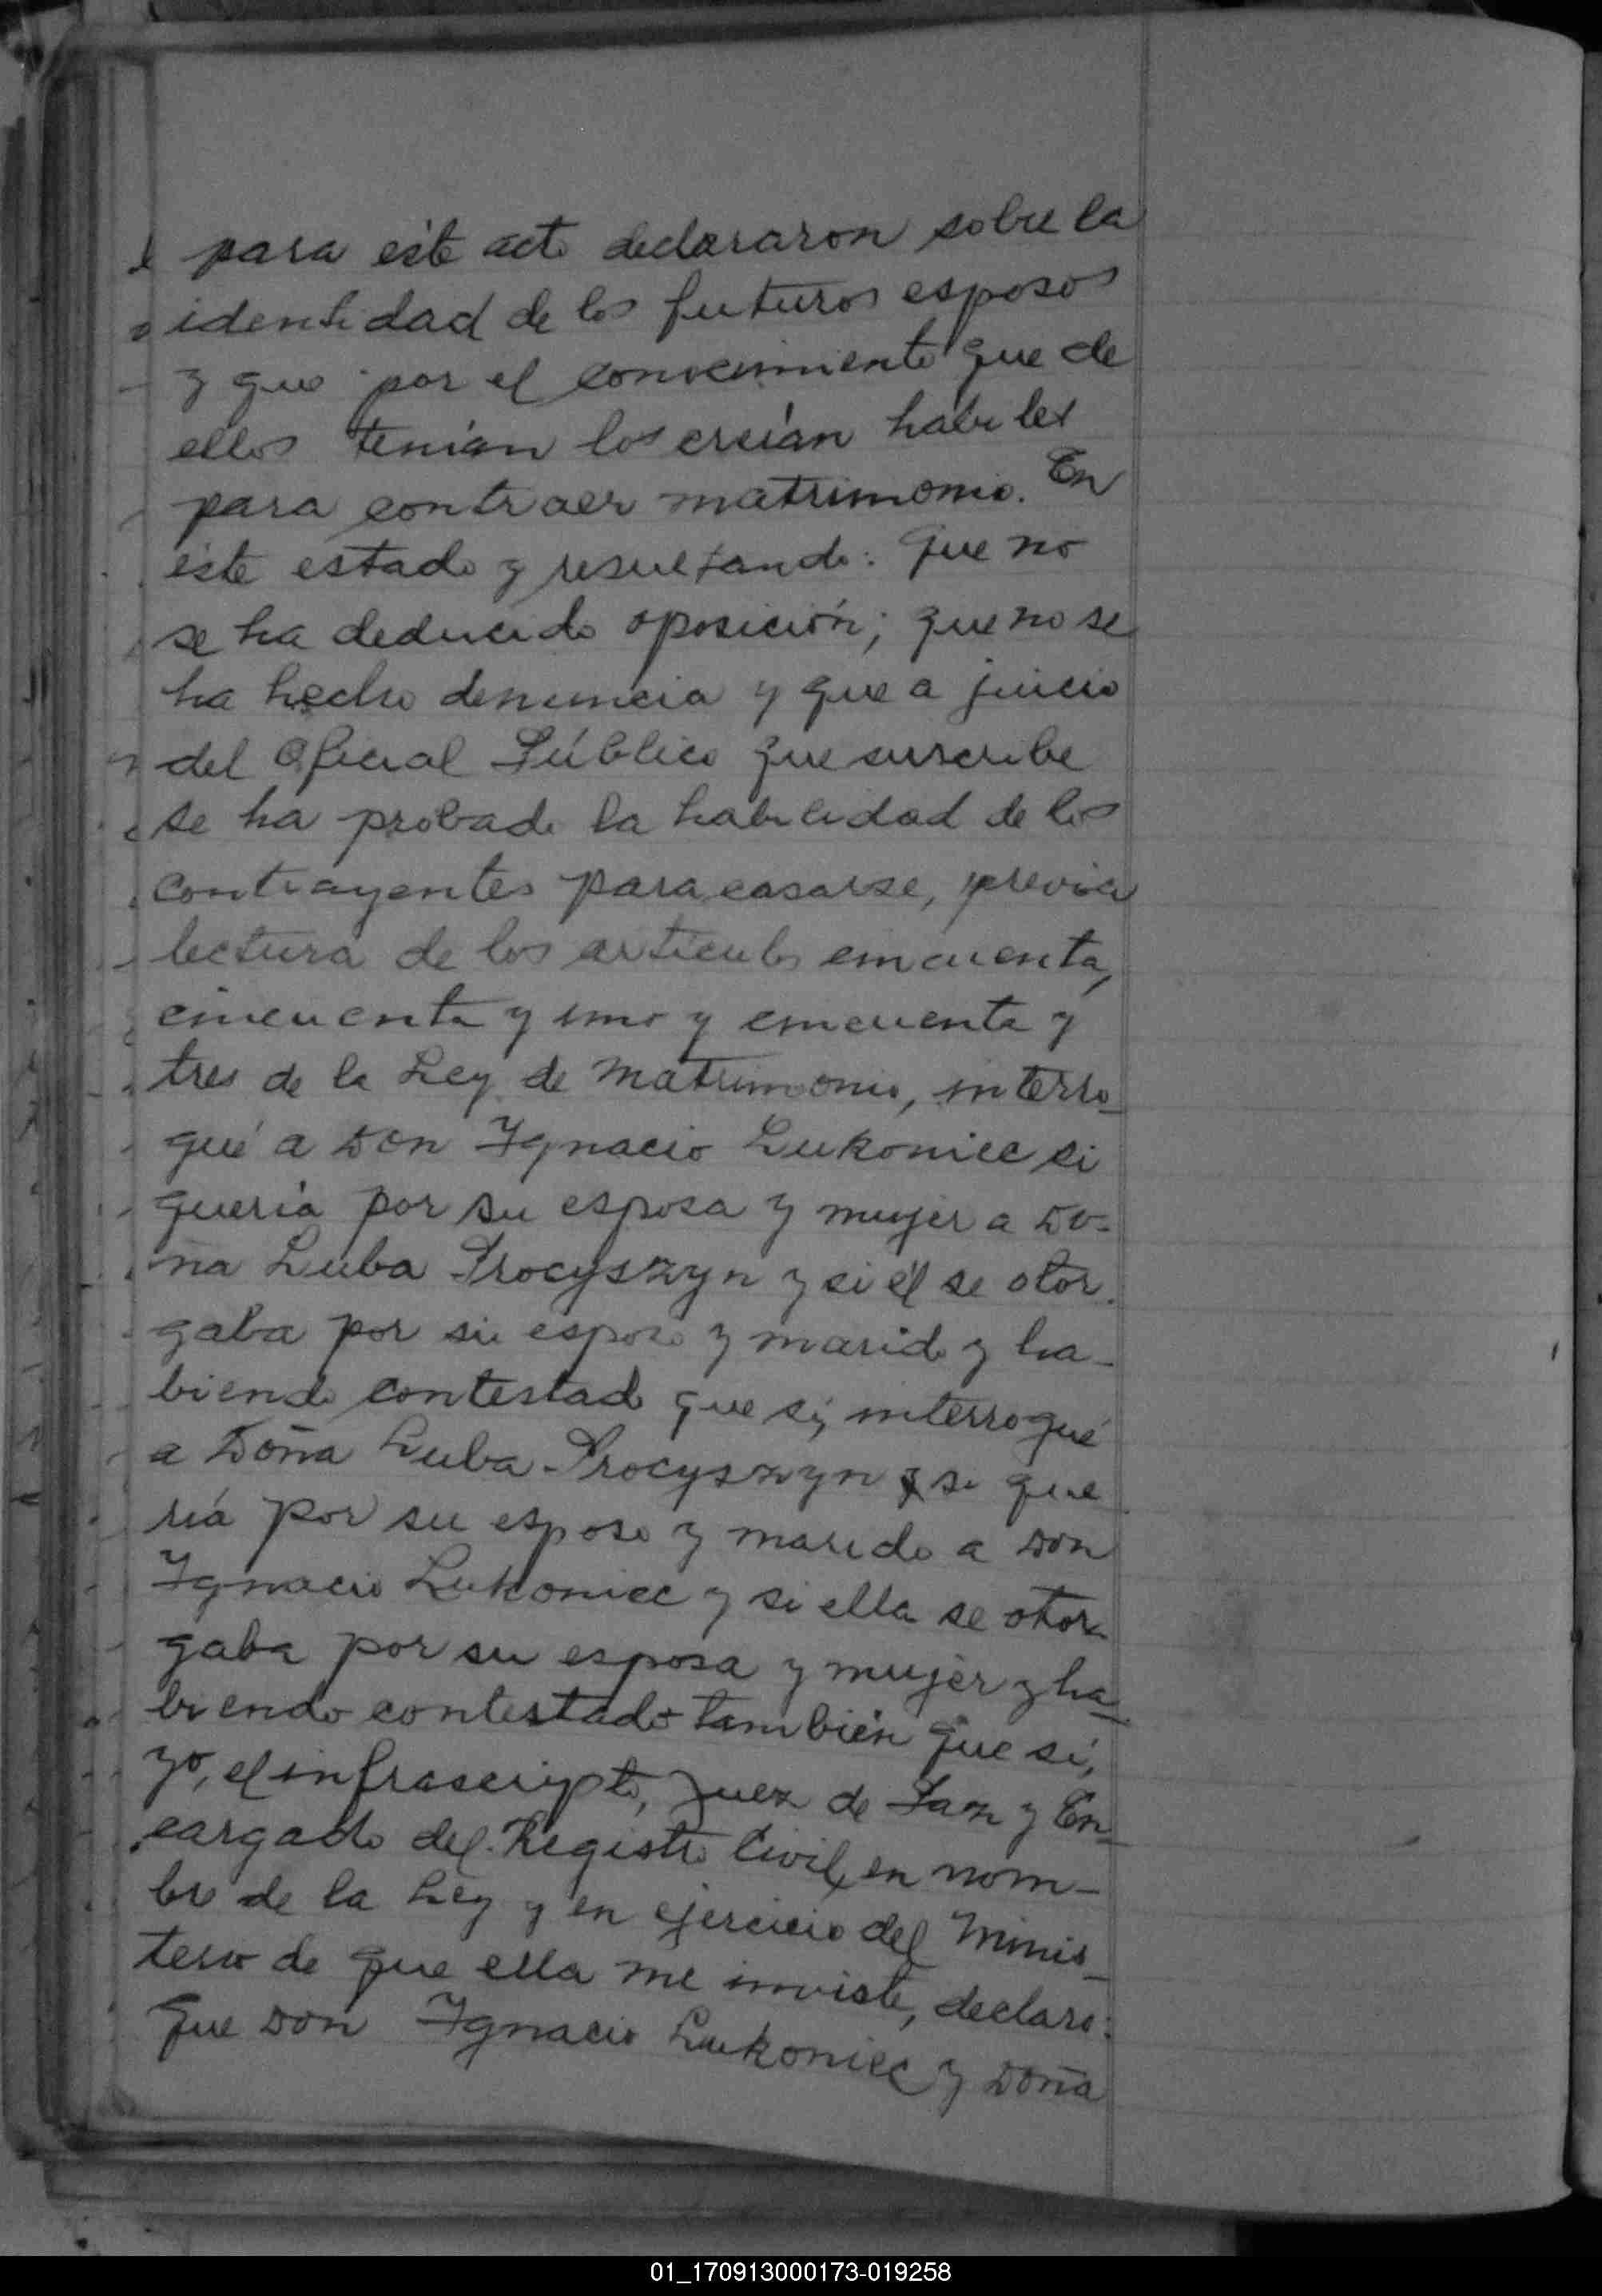 para éste acto declararon sobre la
identidad de los futuros esposos
y que por el conocimiento que de
ellos tenían los creían habiles
para contraer matrimonio. En
éste estado y resultando: Que no
se ha deducido oposición; que no se
ha hecho denuncia y que a juicio
del Oficial Público que suscribe
se ha probado la habilidad de los
contrayentes para casarse, previa
lectura de los artículos cincuenta,
cincuenta y uno y cincuenta y
tres de la Ley de Matrimonio, interro-
gué a Don Ignacio Lukoniec si
quería por su esposa y mujer a Do-
ña Luba Procyszyn y si él se otor-
gaba por su esposo y marido y ha-
biendo contestado que sí, interrogué
a Doña Luba Procyszyn y si que
ría por su esposo y marido a Don
Ignacio Lukoniec y si ella se otor-
gaba por su esposa y mujer y ha-
biendo contestado también que sí,
yo, el infrascripto, Juez de Paz y En-
cargado del Registro Civil, en nom-
bre de la Ley y en ejercicio del Minis-
terio de que ella me inviste, declaro:
Que Don Ignacio Lukoniec y Doña
01_170913000173-019258